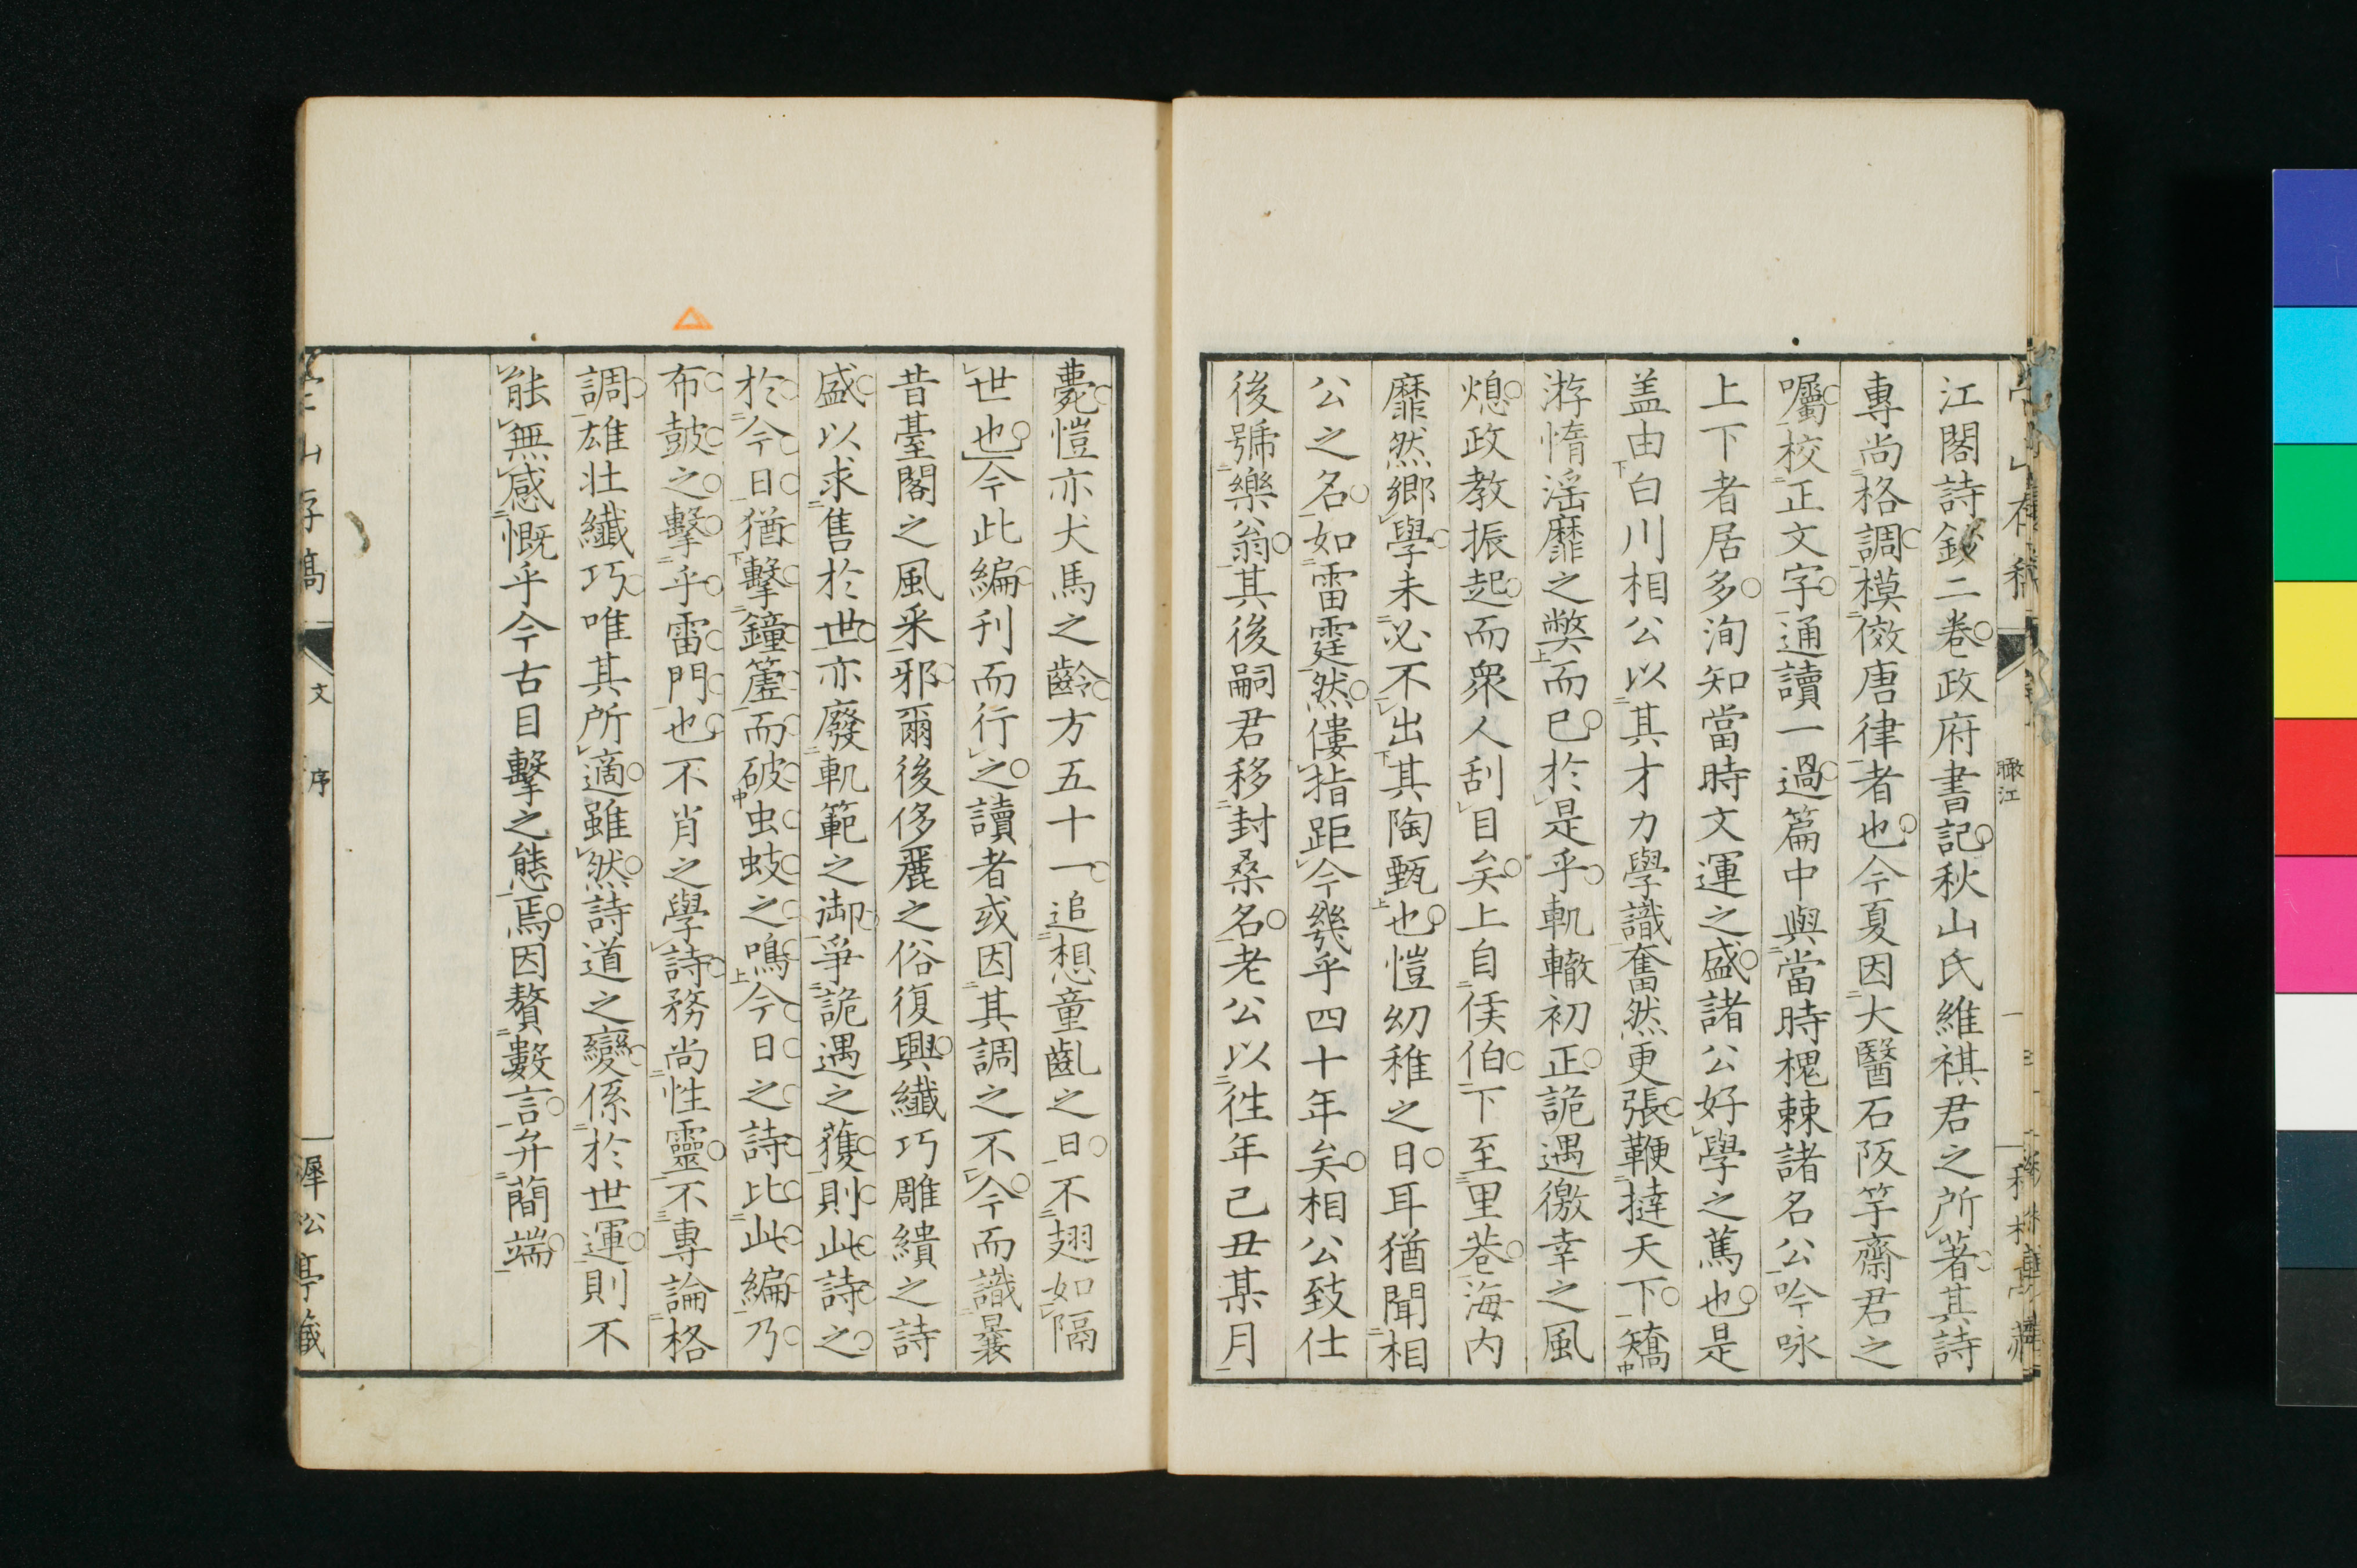 江閣詩鈔二卷政府書記秋山氏維祺君之所著其詩
專尚格調模傚唐律者也今夏因大醫石阪竿齋君之
囑校正文字通讀一過篇中與當時槐棘諸名公吟咏
上下者居多洵知當時文運之盛諸公好學之篤也是
盖由白川相公以其才力學識奮然更張鞭撻天下矯
游惰滛靡之弊而已於是乎軌轍初正詭遇徼幸之風
熄政教振起而衆人刮目矣上自侯伯下至里巷海内
靡然鄉學未必不出其陶甄也愷幼稚之日耳猶聞相
公之名如雷霆然僂指距今幾乎四十年矣相公致仕
後號樂翁其後嗣君移封桑名老公以徃年己丑某月
薨愷亦犬馬之齡方五十一追想童齓之日不翅如隔
世也今此編刊而行之讀者或因其調之不今而識曩
昔臺閣之風釆邪爾後侈麗之俗復興纖巧雕繢之詩
盛以求售於世亦廢軌範之御爭詭遇之獲則此詩之
於今日猶擊鐘簴而破虫蚑之鳴今日之詩比此編乃
布鼓之擊乎雷門也不肖之學詩務尚性靈不專論格
調雄壮纖巧唯其所適雖然詩道之變係於世運則不
能無感慨乎今古目擊之態焉因贅數言弁蕳端
文
序
犀公亭藏